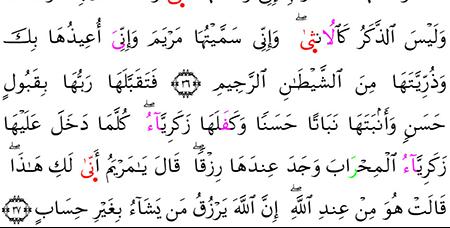 وَلَيْسَ ٱلذَّكَرُ كَٱلُانثىٰۖ وَإِنِّى سَمَّيْتُهَا مَرْيَمَ وَإِنِّىَ أُعِيذُهَا بِكَ
وَذُرِّيَّتَهَا مِنَ ٱلشَّيْطَٰنِ ٱلرَّحِيمِ ٣٦ فَتَقَبَّلَهَا رَبُّهَا بِقَبُولٍ
حَسَنٖ وَأَنۢبَتَهَا نَبَاتًا حَسَنٗا وَكَفَلَهَا زَكَرِيَّآءُۖ كُلَّمَا دَخَلَ عَلَيْهَا
زَكَرِيَّآءُ ٱلْمِحْرَابَ وَجَدَ عِندَهَا رِزْقٗاۖ قَالَ يَٰمَرْيَمُ أَنّىٰ لَكِ هَٰذَاۖ
قَالَتْ هُوَ مِنْ عِندِ ٱللَّهِۖ إِنَّ ٱللَّهَ يَرْزُقُ مَن يَشَآءُ بِغَيْرِ حِسَابٍ ٣٧